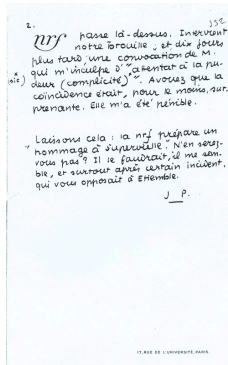 2.
352
nrf passe là-dessus. Intervient
notre brouille, et dix jours
plus tard, une convocation de M.
* qui m'inculpe d' "attentat à la pu-
(sic) deur (complicité)". Avouez que la
coïncidence était, pour le moins, sur-
prenante. Elle m'a été pénible.
Laissons cela : la nrf prépare un
"hommage à Supervielle". N'en serez-
vous pas ? Il le faudrait, il me sem-
ble, et surtout après certain incident,
qui vous opposait à Etiemble.
J. P.
17, RUE DE L'UNIVERSITÉ, PARIS.